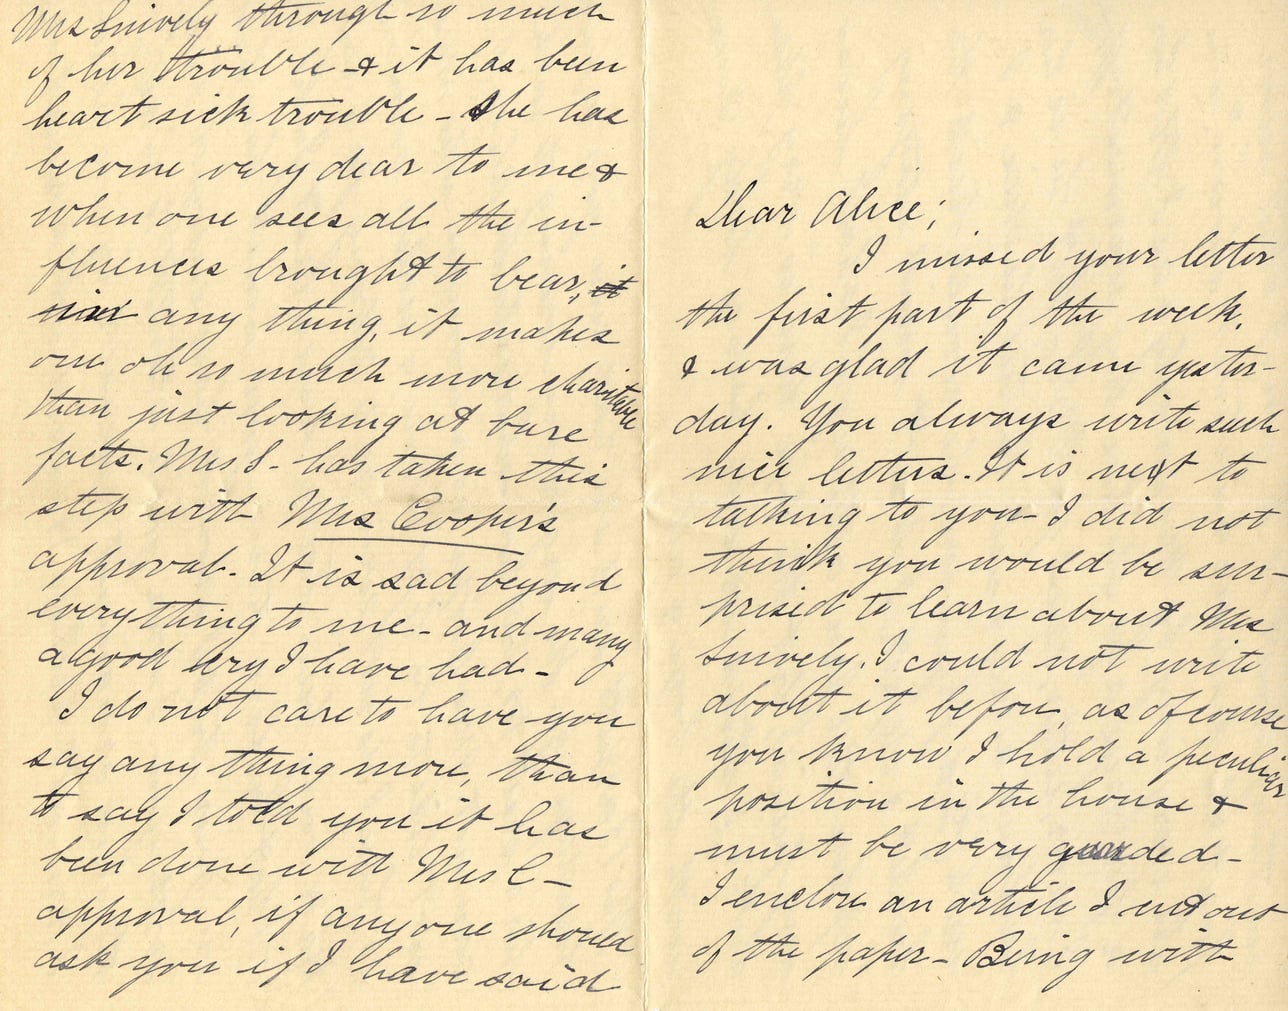 Dear Alice;
I missed your letter
the first part of the week,
& was glad it came yester-
day. You always write such
nice letters. It is next to
talking to you - I did not
think you would be sur-
prised to learn about Mrs
Snively. I could not write
about it before, as of course
you know I hold a peculiar
position in the house &
must be very guarded -
I enclose an article I cut out
of the paper - Being with
Mrs Snively through so much
of her trouble - & it has been
heart sick trouble - She has
become very dear to me &
when one sees all the in-
fluences brought to bear,
any thing, it makes
one oh so much more charitable
than just looking at bare
facts. Mrs S - has taken this
step with Mrs Cooper's
approval. It is sad beyond
everything to me - and many
a good cry I have had -
I do not care to have you
say any thing more, than
to say I told you it has
been done with Mrs C -
approval, if any one should
ask you if I have said